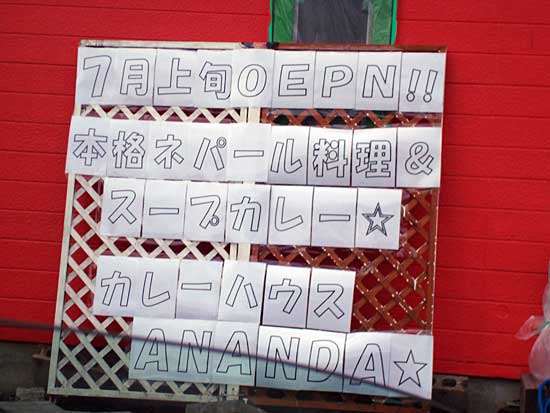 7月上旬OEPN!!
本格ネパール料理&
スープカレー☆
カレーハウス
ANANDA☆